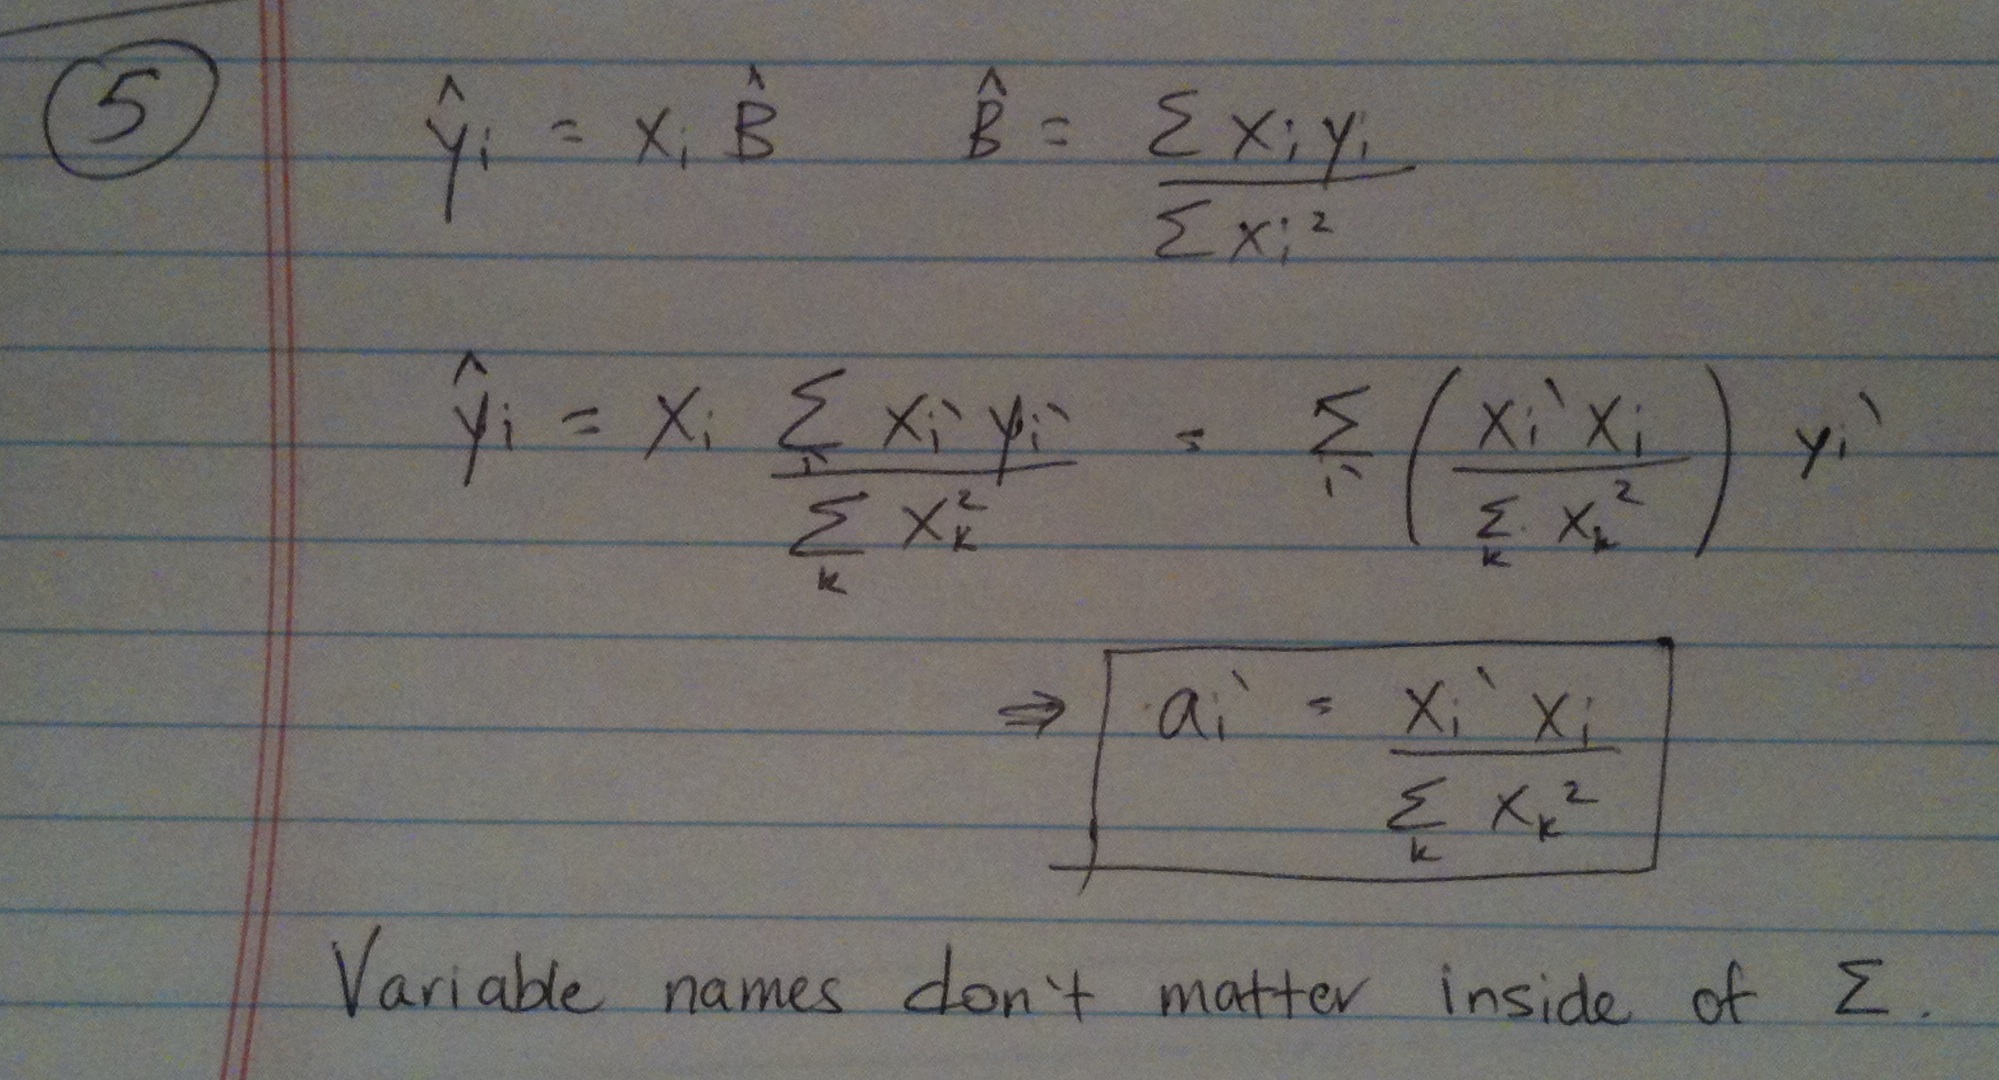 5
ŷᵢ = xᵢ B̂    B̂ = Σ xᵢ yᵢ / Σ xᵢ²
ŷᵢ = xᵢ Σᵢ‵ xᵢ‵ yᵢ‵ / Σₖ xₖ² = Σᵢ‵ ( xᵢ‵ xᵢ / Σₖ xₖ² ) yᵢ‵
⇒ aᵢ‵ = xᵢ‵ xᵢ / Σₖ xₖ²
Variable names don't matter inside of Σ.